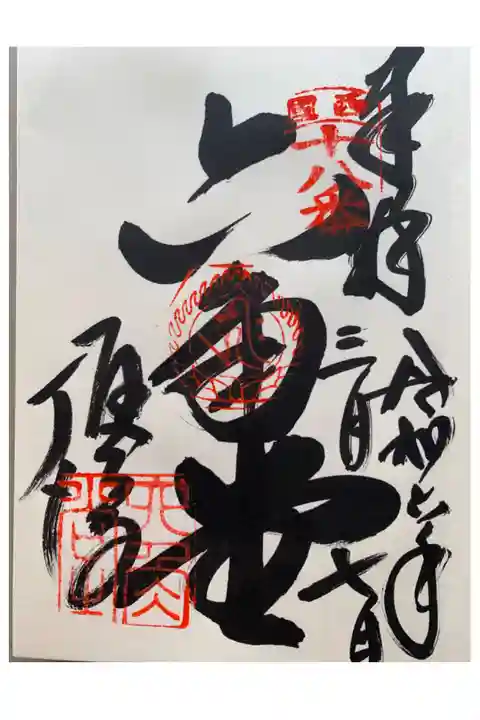 奉拝
令和六年
三月七日
西国十八番
六角堂
頂法寺